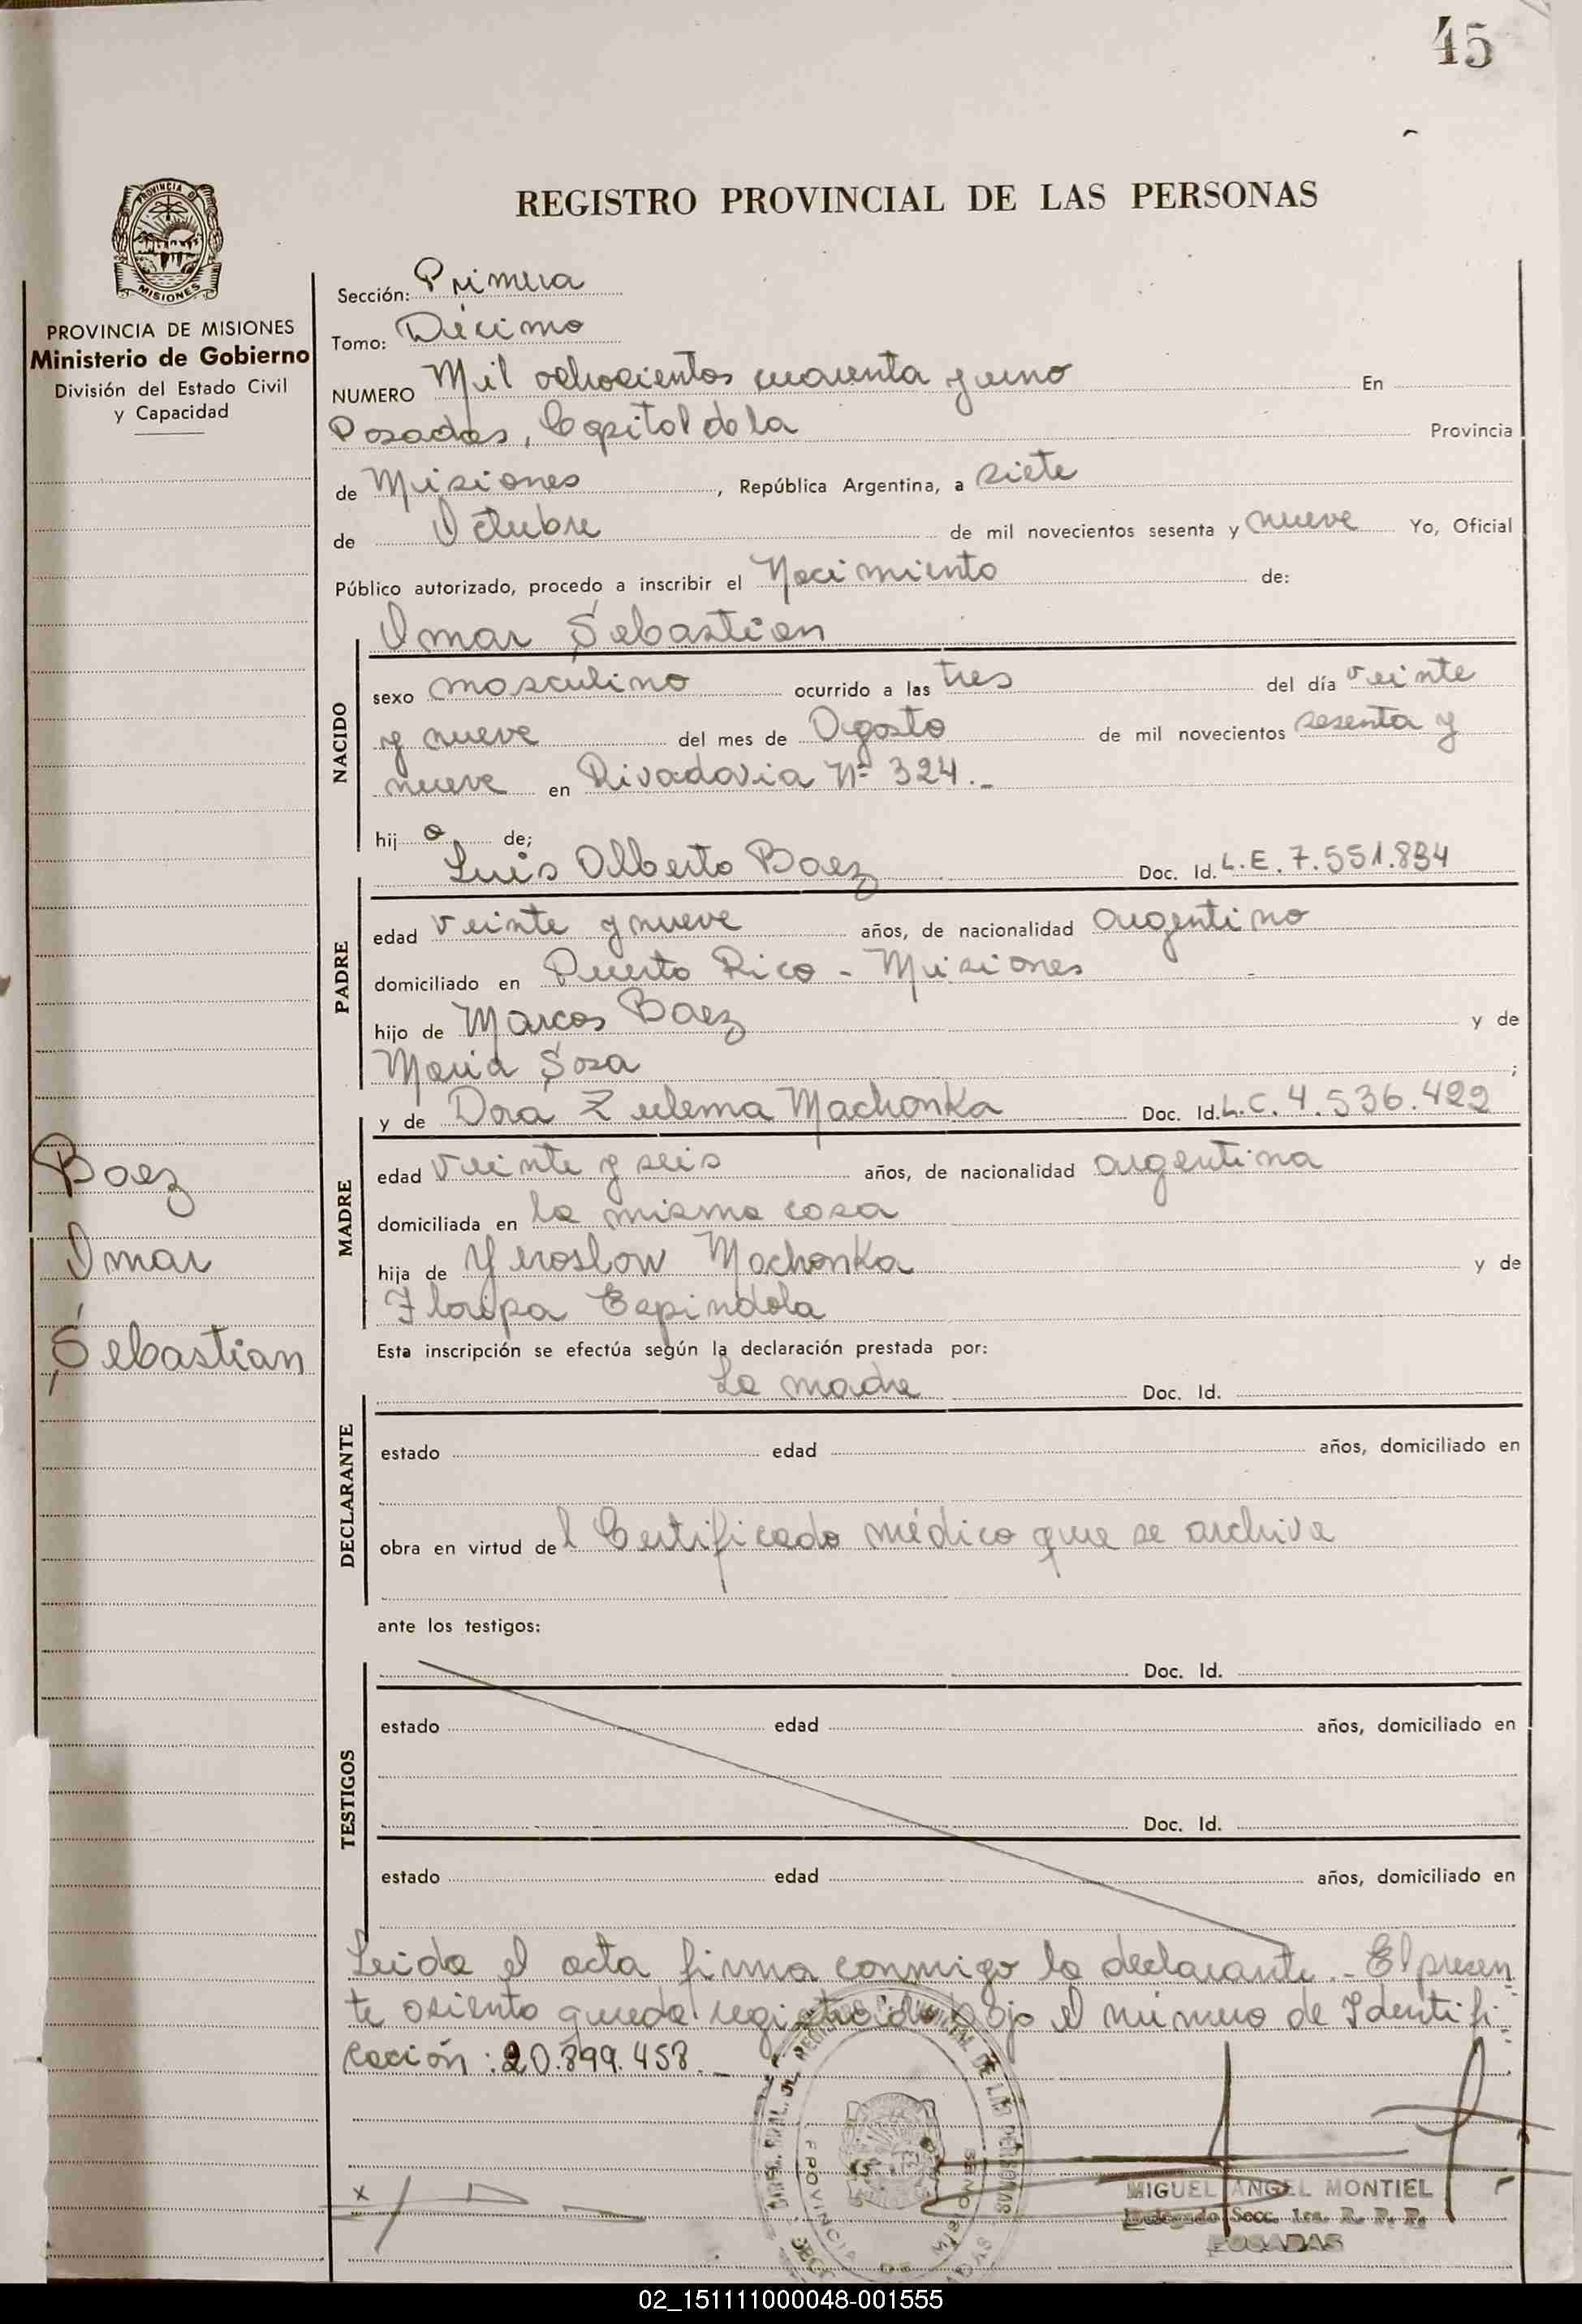 45
REGISTRO PROVINCIAL DE LAS PERSONAS
PROVINCIA DE MISIONES
PROVINCIA DE MISIONES
Ministerio de Gobierno
División del Estado Civil
y Capacidad
Baez
Omar
Sebastian
Sección: Primera
Tomo: Décimo
NUMERO Mil ochocientos cuarenta y uno En
Posadas, Capital de la Provincia
de Misiones, República Argentina, a siete
de Octubre de mil novecientos sesenta y nueve Yo, Oficial
Público autorizado, procedo a inscribir el Nacimiento de:
Omar Sebastian
NACIDO
sexo masculino ocurrido a las tres del día veinte
y nueve del mes de Agosto de mil novecientos sesenta y
nueve en Rivadavia Nº 324.-
hijo de;
Luis Alberto Baez Doc. Id. L.E. 7.551.834
PADRE
edad veinte y nueve años, de nacionalidad argentino
domiciliado en Puerto Rico - Misiones
hijo de Marcos Baez y de
Maria Sosa ;
y de Dora Zulema Machonka Doc. Id. L.C. 4.536.422
MADRE
edad veinte y seis años, de nacionalidad argentina
domiciliada en la misma casa
hija de Yeroslow Machonka y de
Floripa Espindola
Esta inscripción se efectúa según la declaración prestada por:
La madre Doc. Id.
DECLARANTE
estado edad años, domiciliado en
obra en virtud del Certificado médico que se archiva
ante los testigos:
Doc. Id.
TESTIGOS
estado edad años, domiciliado en
Doc. Id.
estado edad años, domiciliado en
Leida el acta firma conmigo la declarante.- El presen-
te asiento queda registrado bajo el número de Identifi-
cación: 20.899.458.-
x
MIGUEL ANGEL MONTIEL
Delegado Secc. 1ra. R. P. P.
POSADAS
02_151111000048-001555